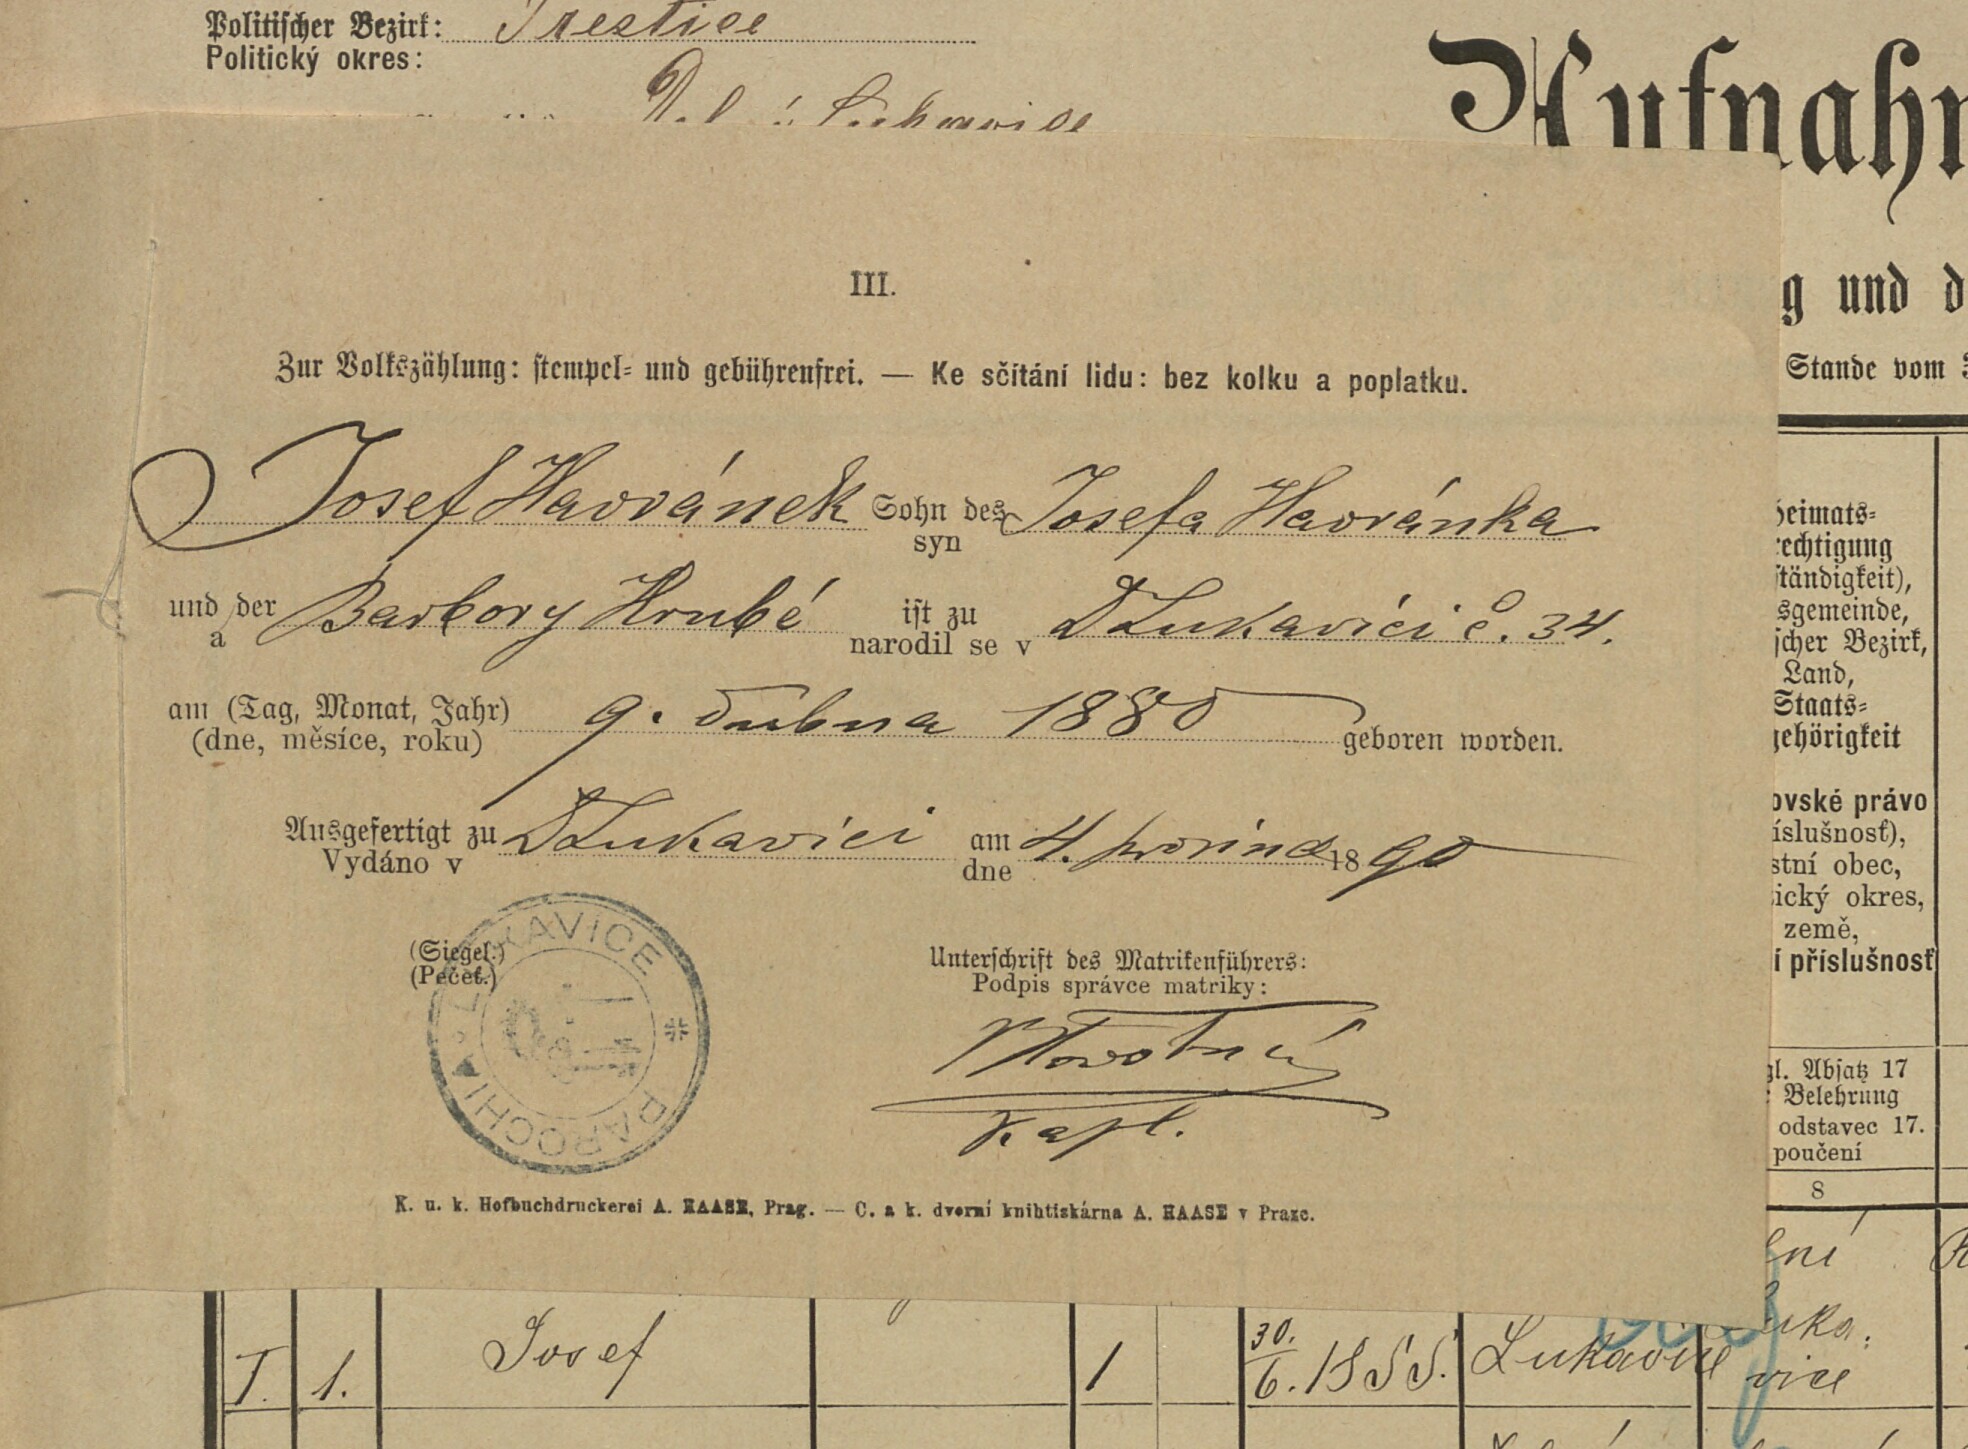 Politischer Bezirk: Přeštice
Politický okres:
Aufnahm
g und d
Stande vom 3
III.
Zur Volkszählung: stempel- und gebührenfrei. — Ke sčítání lidu: bez kolku a poplatku.
Josef Havránek Sohn des Josefa Havránka
syn
und der Barbory Hrubé ist zu DLukavici č. 34.
a narodil se v
am (Tag, Monat, Jahr) 9. dubna 1880
(dne, měsíce, roku) geboren worden.
Ausgefertigt zu DLukavici am 4. prosince 1890
Vydáno v dne
(Siegel.)
(Pečeť.)
PAROCHIA LUKAVICE
Unterschrift des Matrikenführers:
Podpis správce matriky:
Novotný
kapl.
K. u. k. Hofbuchdruckerei A. HAASE, Prag. — C. a k. dvorní knihtiskárna A. HAASE v Praze.
heimats=
rechtigung
ständigkeit),
sgemeinde,
scher Bezirk,
Land,
Staats=
gehörigkeit
ovské právo
íslušnosť),
stní obec,
ický okres,
země,
í příslušnosť
gl. Absatz 17
: Belehrung
odstavec 17.
poučení
8
lní
Luka:
vice
I. 1. Josef 1 30./6. 1855. Lukavice